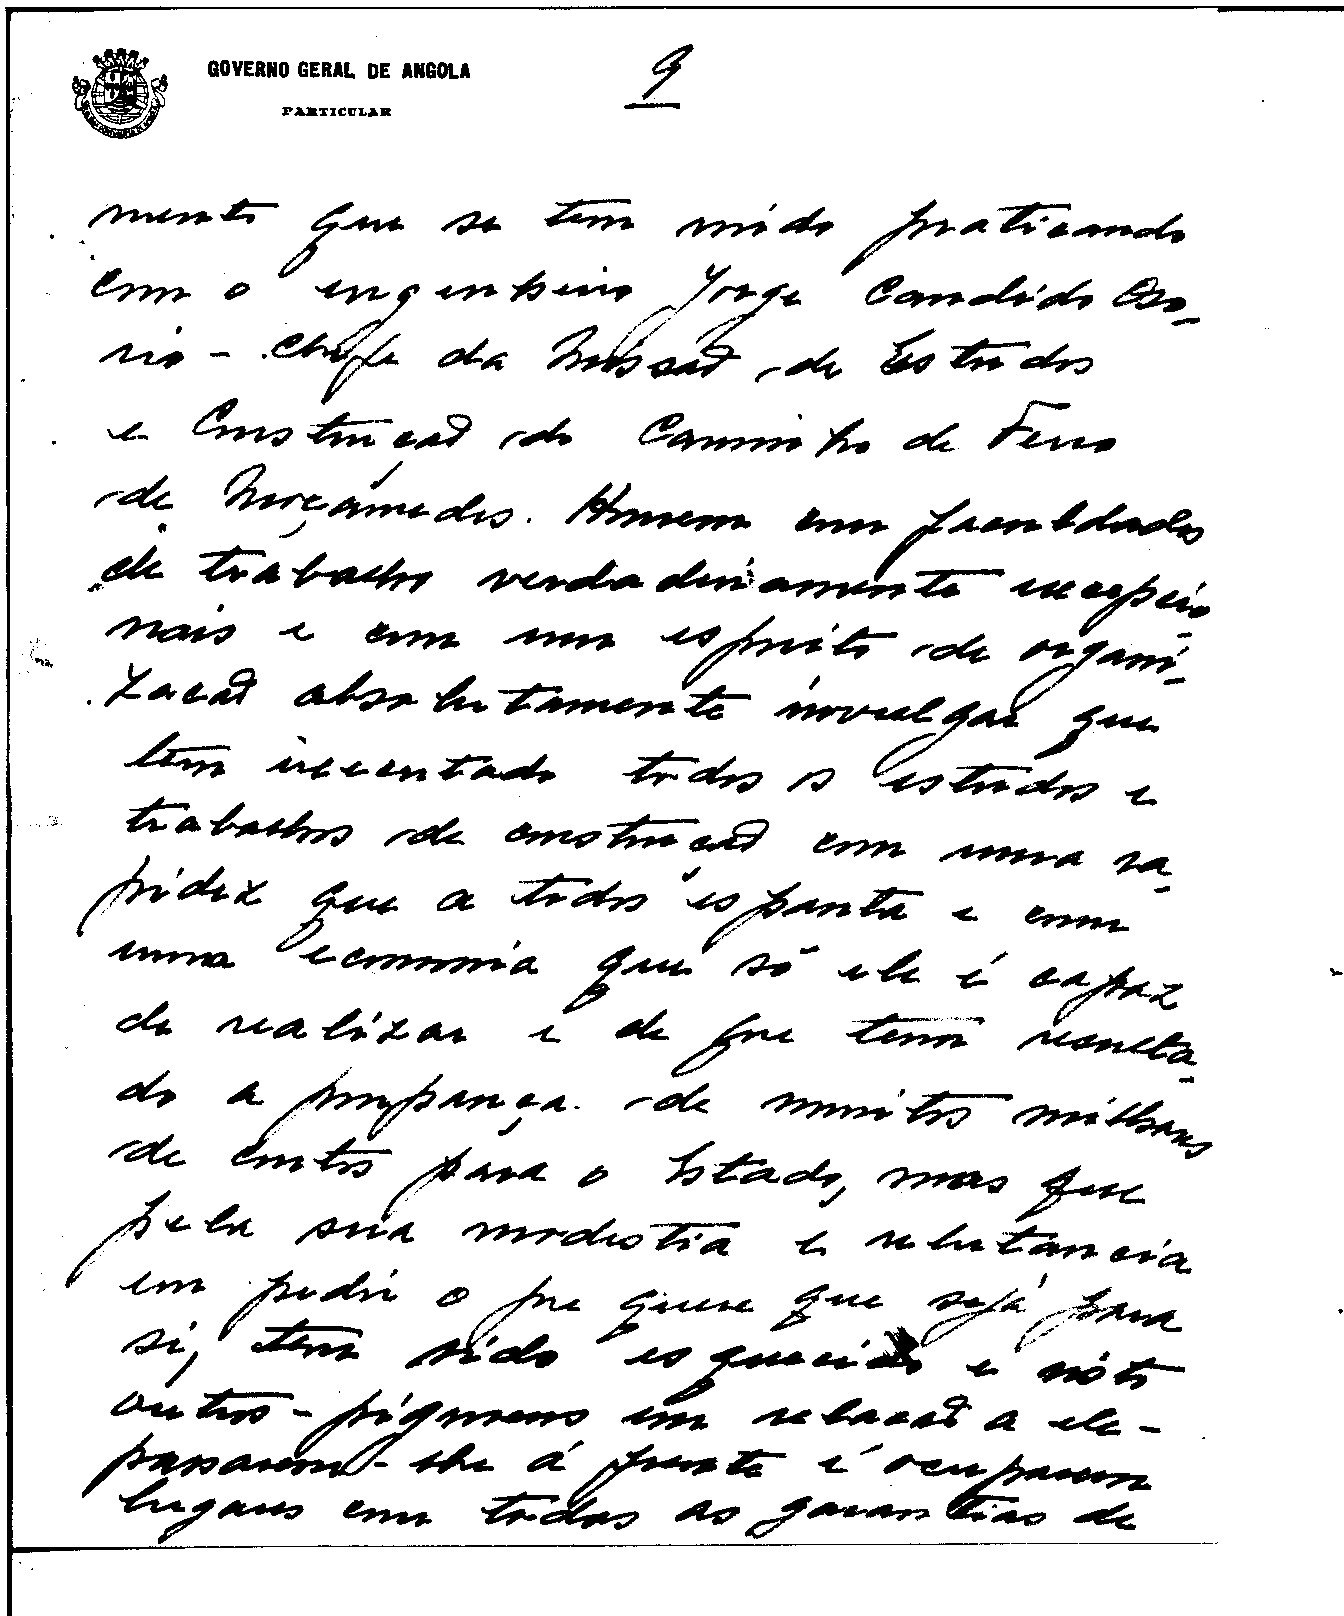 GOVERNO GERAL DE ANGOLA
PARTICULAR
9
mento que se tem vindo praticando
com o engenheiro Jorge Candido Oso-
rio - chefe da Missaõ de Estudos
e Construçaõ do Caminho de Ferro
de Moçâmedes. Homem com faculdades
de trabalho verdadeiramente excepcio
nais e com um espirito de organi-
zacaõ absolutamente invulgar que
tem executado todos os estudos e
trabalhos de construçaõ com uma ra-
pidez que a todos espanta e com
uma economia que só ele é capaz
de realizar e de que tem resulta-
do a poupança de muitos milhares
de contos para o Estado, mas que
pela sua modestia e relutancia
em pedir o que quer que sejá para
si, tem sido esquecido e visto
outros - pigmeus em relacaõ a ele -
passarem-lhe á frente é ocuparem
lugares com todas as garantias de